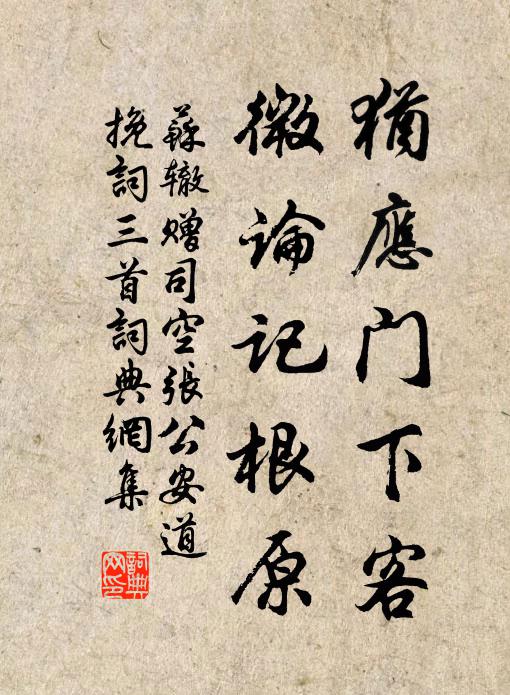 猶應門下客
微論記根原
蘇轍赠司空張公安道
挽詞三首詞典網集
詞典
网印